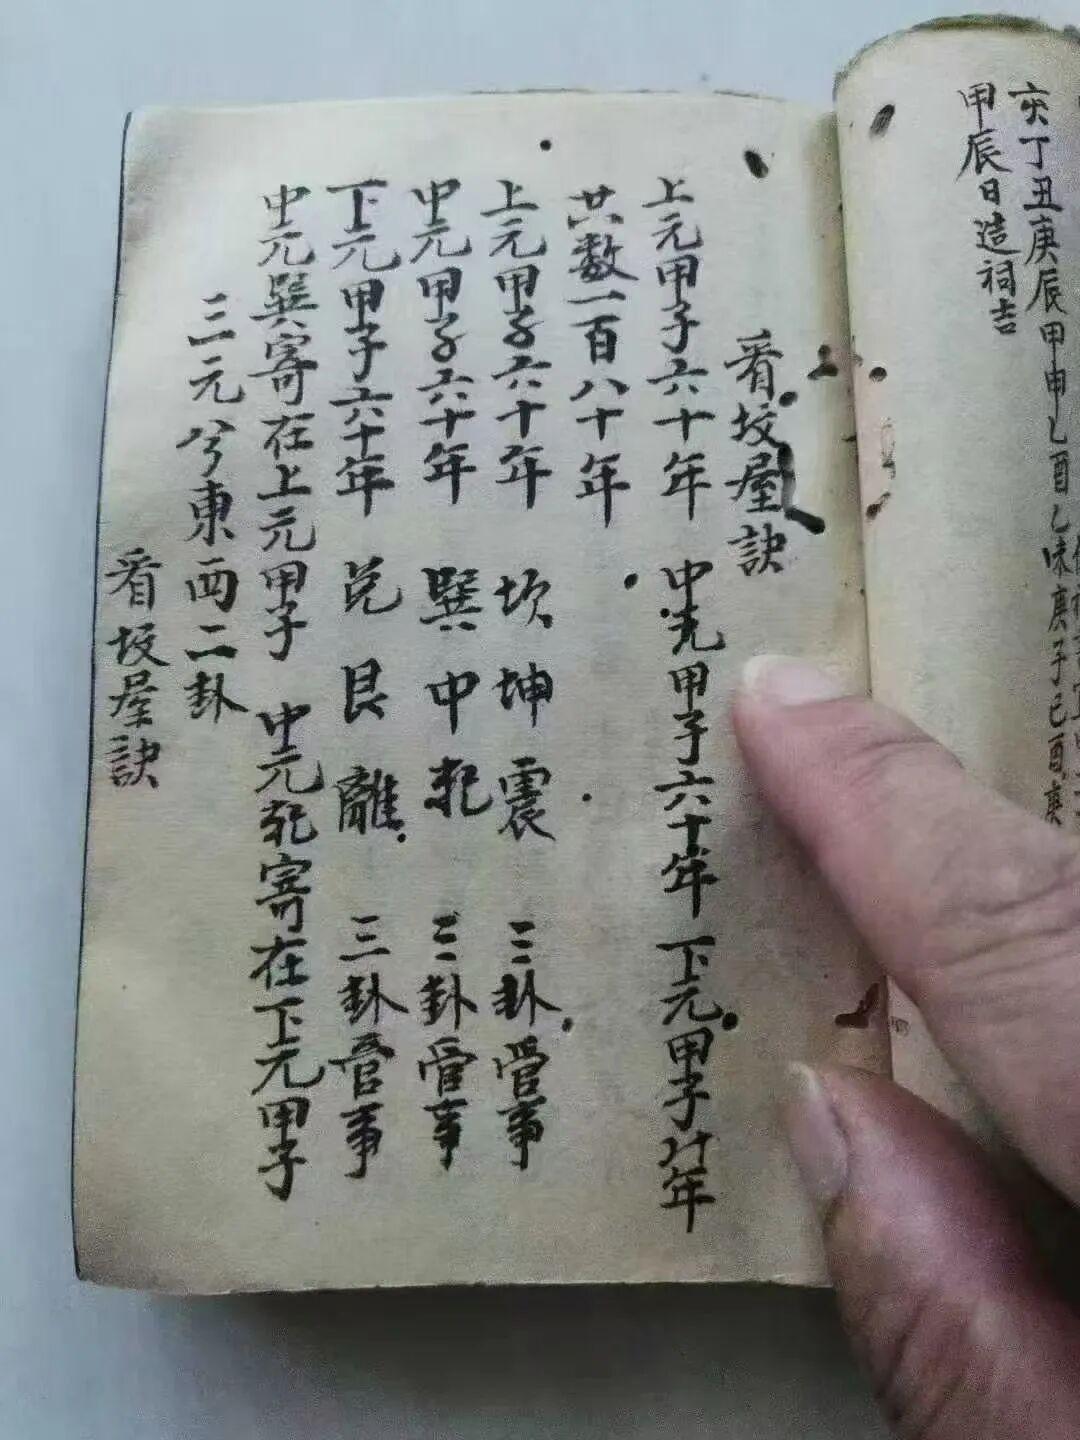 亥丁丑庚辰甲申乙酉乙味庚子己酉庚
甲辰日造祠吉
看坟屋訣
上元甲子六十年 中元甲子六十年 下元甲子六十年
共数一百八十年
上元甲子六十年 坎坤震 三卦管事
中元甲子六十年 巽中乾 三卦管事
下元甲子六十年 兑艮離 三卦管事
中元巽寄在上元甲子 中元乾寄在下元甲子
三元兮東西二卦
看坟屋訣